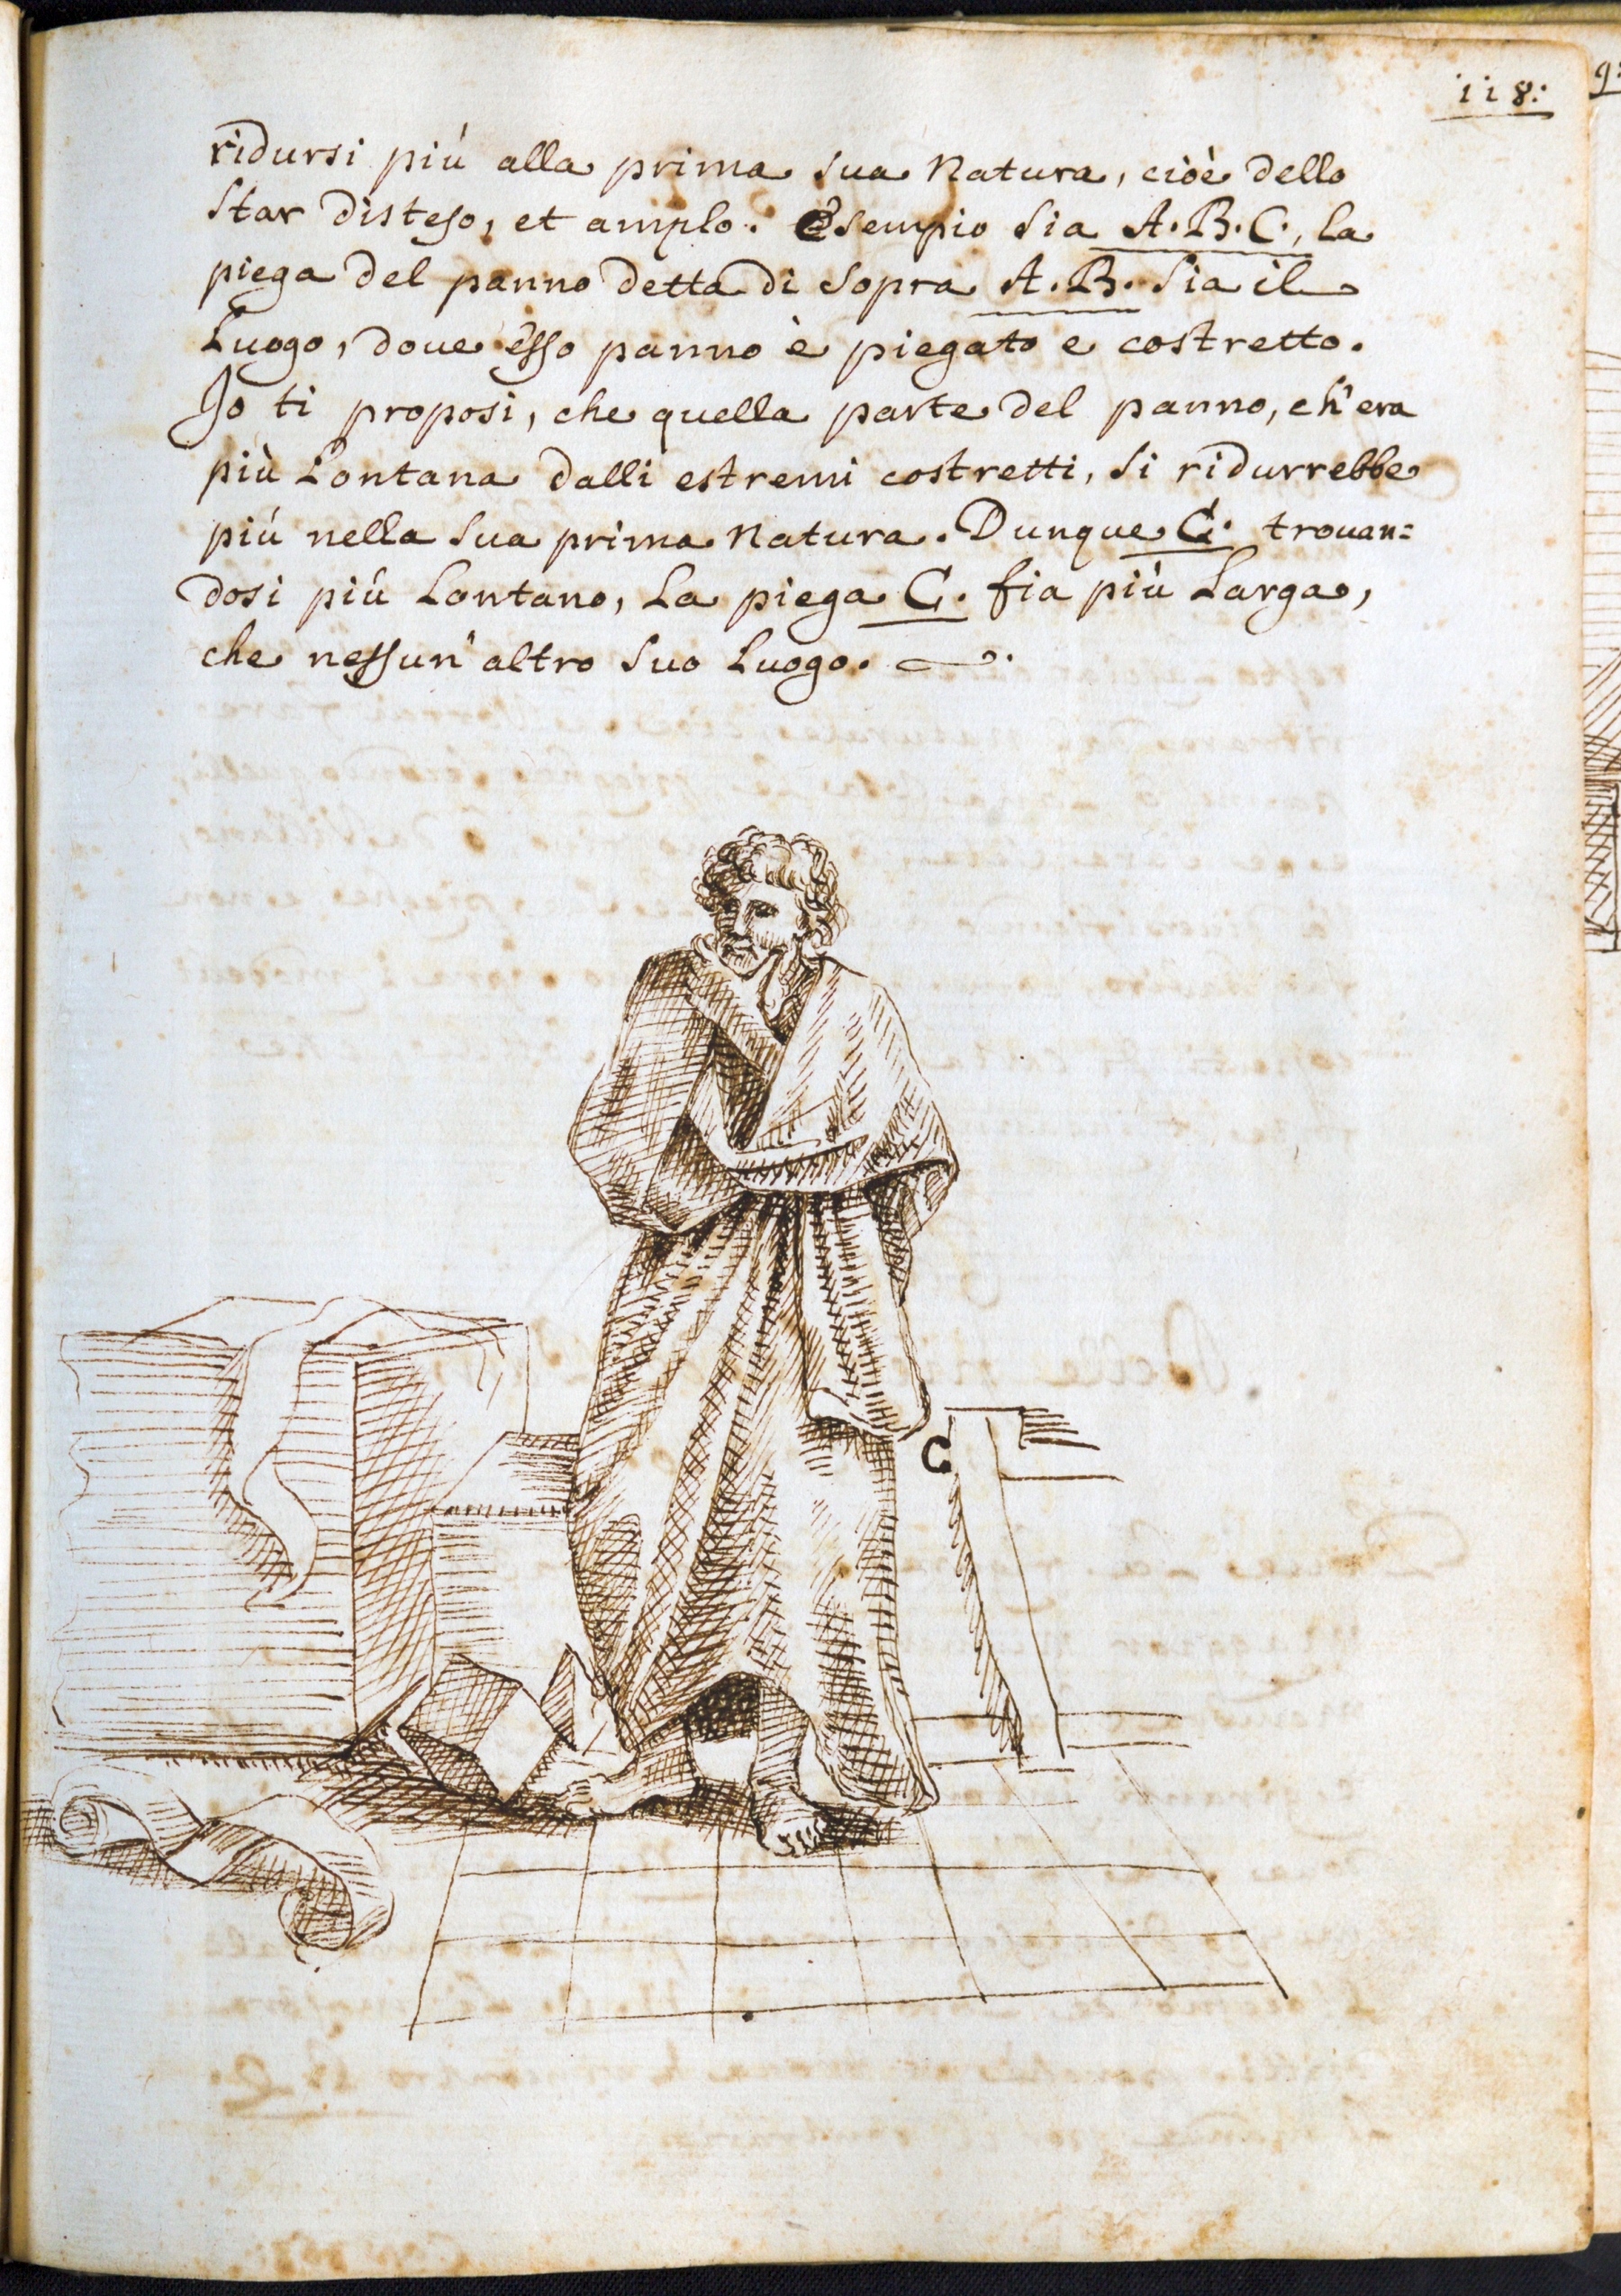 118:
ridursi più alla prima sua Natura, cioè dello
star disteso, et amplo. Esempio sia A.B.C., la
piega del panno detta di sopra A.B. sia il
Luogo, doue esso panno è piegato e costretto.
Jo ti proposi, che quella parte del panno, ch'era
più Lontana dalli estremi costretti, si ridurrebbe
più nella sua prima Natura. Dunque C. trouan=
dosi più Lontano, La piega C. fia più Larga,
che nessun'altro suo Luogo.
C